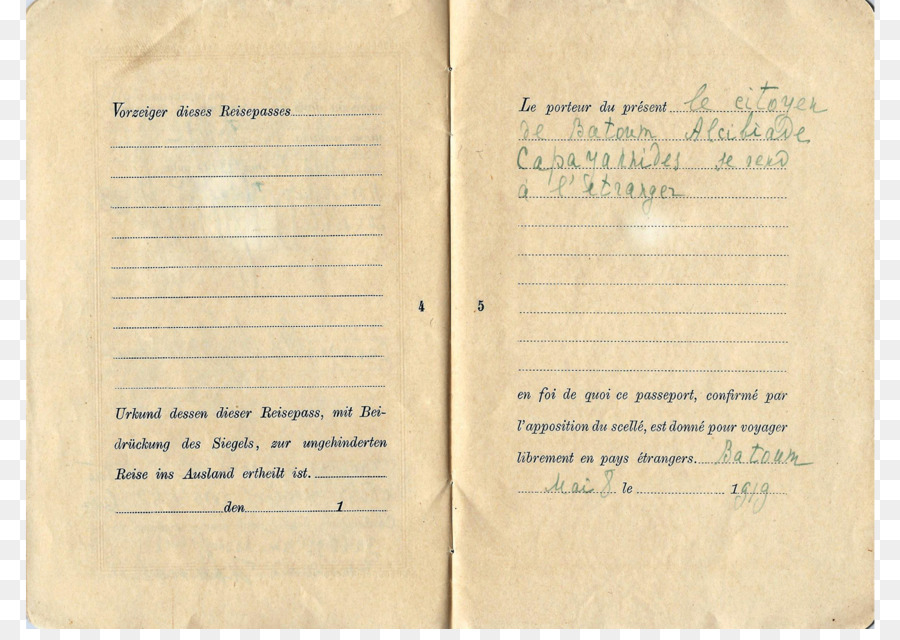 Vorzeiger dieses Reisepasses
Urkund dessen dieser Reisepass, mit Bei-
drückung des Siegels, zur ungehinderten
Reise ins Ausland ertheilt ist.
den 1
4
5
Le porteur du présent le citoyen
de Batoum Alcibiade
se rend
à l'étranger
en foi de quoi ce passeport, confirmé par
l'apposition du scellé, est donné pour voyager
librement en pays étrangers. Batoum
Mai 8 le 1919